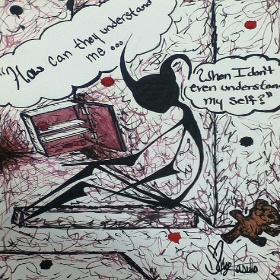 "How can they understand
me ...
When I don't
even understand
my self?"